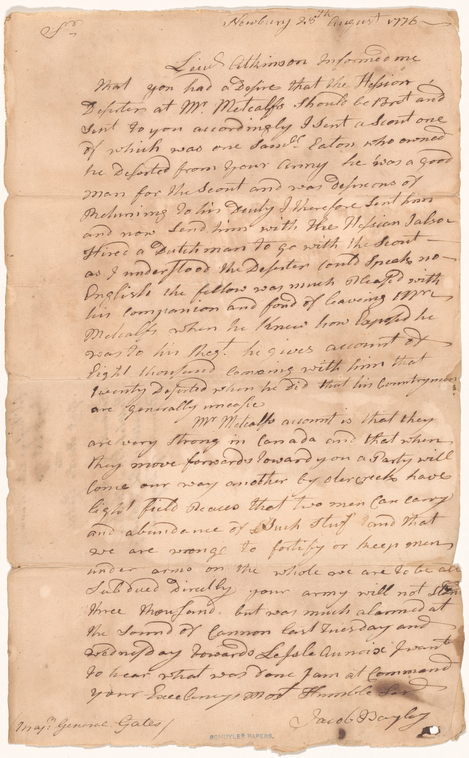 Newbury 28th August 1776
Sr
Lieut Atkinson Informed me
that you had a Desire that the Hession
Deserter at Mr Metcalfs should be Brot and
Sent to you accordingly I Sent a Scout one
of which was one Samll Eaton who owned
he Deserted from your Army he was a good
man for the Scout and was Desireous of
Returning to his Duty I therefore Sent him
and now Send him with the Hession I also
Hired a Dutchman to go with the Scout
as I understood the Deserter could Speak no
English the fellow was much Pleased with
his Companion and fond of leaving Mr
Metcalfs when he Knew how Exposed he
was to his Regt. he gives account of
Eight thousand Comeing with him that
twenty Deserted when he did that his Countrymen
are generally unease
Mr Metcalfs account is that they
are very Strong in Canada and that when
they move forwards toward you a Party will
Come our way another by
light field Peaces that two men Can carry
and abundance of Such Stuf and that
we are wrong to fortify or keep men
under arms on the whole we are to be all
Subdued Directly your army will not Stand
three thousand. but was much alarmed at
the Sound of Cannon last Tuesday and
Wednesday towards Lesle Aunoix I want
to hear what was done I am at Command
your Excellencys most Humble Servt
Jacob Bayley
Majr General Gates
SCHUYLER PAPERS.